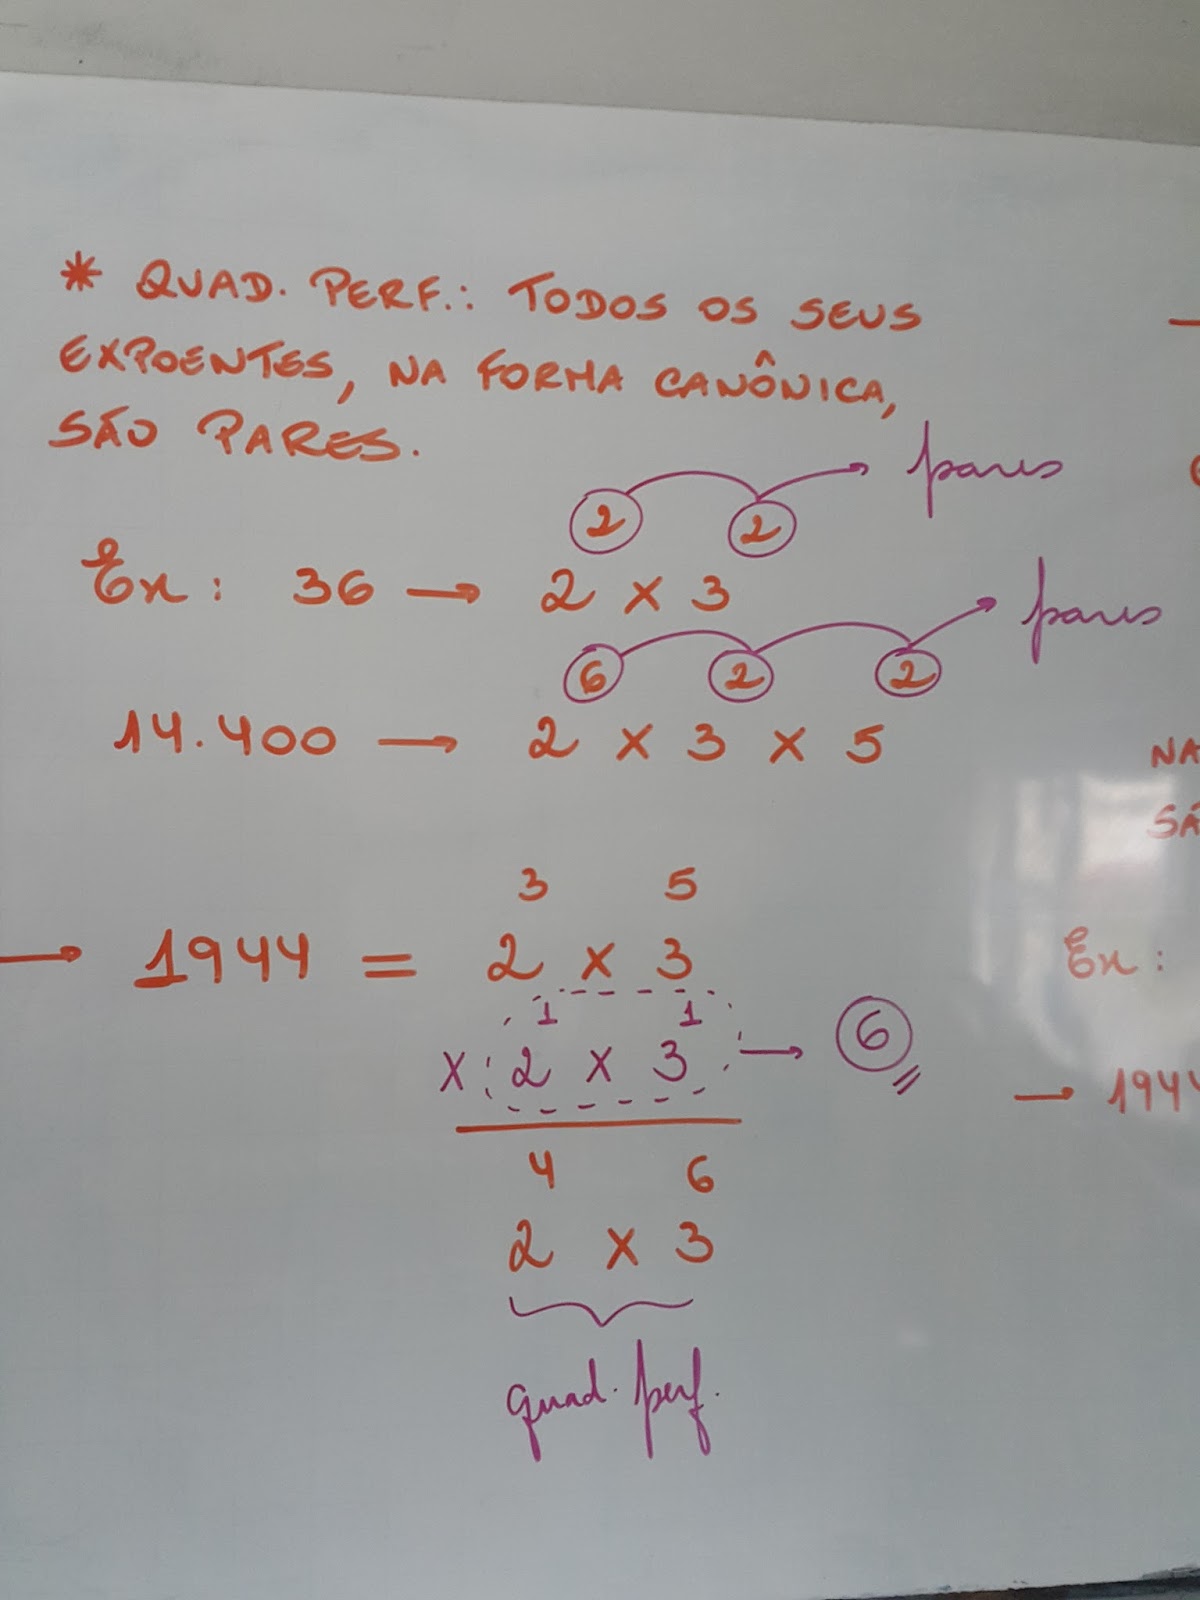 * QUAD. PERF.: TODOS OS SEUS
EXPOENTES, NA FORMA CANÔNICA,
SÃO PARES.
2 2 → pares
Ex: 36 → 2 x 3
6 2 2 → pares
14.400 → 2 x 3 x 5
3 5
→ 1944 = 2 x 3
1 1
x 2 x 3 → 6
4 6
2 x 3
quad. perf.
NA
SÃ
Ex:
→ 1944